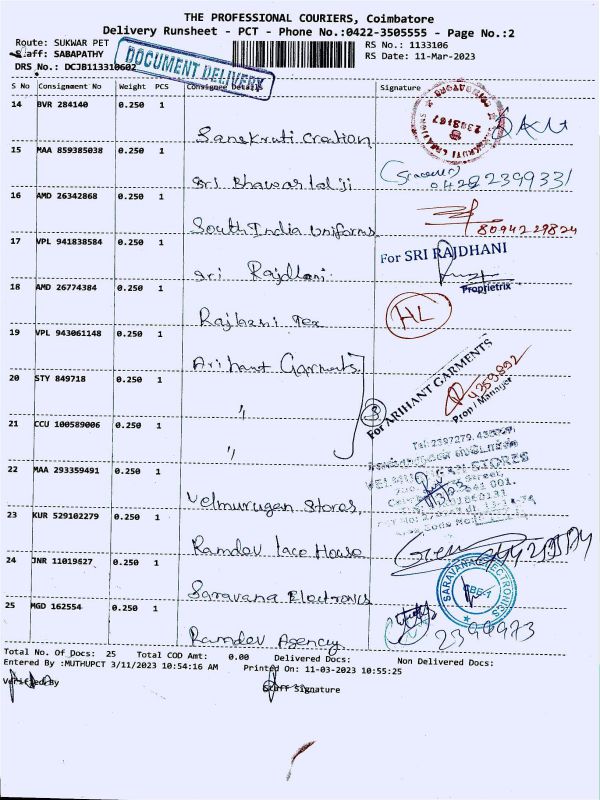 THE PROFESSIONAL COURIERS, Coimbatore
Delivery Runsheet - PCT - Phone No.:0422-3505555 - Page No.:2
Route: SUKWAR PET RS No.: 1133106
Staff: SABAPATHY RS Date: 11-Mar-2023
DRS No.: DCJB113310602
DOCUMENT DELIVERY
S No Consignment No Weight PCS Consignee Details Signature
14 BVR 284140 0.250 1
Sanskruti Creation
15 MAA 859385038 0.250 1
Sri Bhawarlal ji
0422 2399331
16 AMD 26342868 0.250 1
South India Uniforms
8094229824
17 VPL 941838584 0.250 1
For SRI RAJDHANI
Sri Rajdhani
Proprietrix
18 AMD 26774384 0.250 1
Rajhans Tex
HL
19 VPL 943061148 0.250 1
Arihant Garments
For ARIHANT GARMENTS
4359892
Prop / Manager
20 STY 849718 0.250 1
"
3
21 CCU 100589006 0.250 1
"
22 MAA 293359491 0.250 1
Velmurugan Stores
23 KUR 529102279 0.250 1
Ramdev lace House
24 JNR 11019627 0.250 1
SARAVANA ELECTRONICS
CBE-1
Saravana Electronics
25 MGD 162554 0.250 1
2399973
Ramdev Agency
Total No. Of Docs: 25 Total COD Amt: 0.00 Delivered Docs: Non Delivered Docs:
Entered By :MUTHUPCT 3/11/2023 10:54:16 AM Printed On: 11-03-2023 10:55:25
Verified By Staff Signature